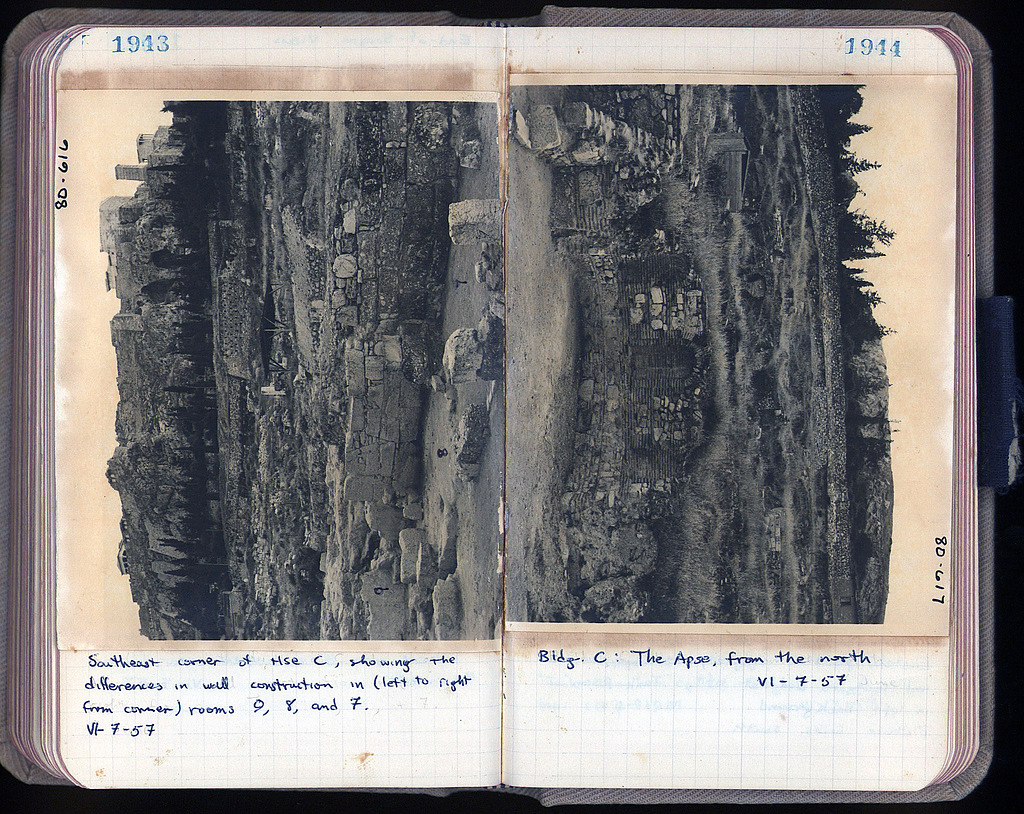 1943
80-616
7
8
9
Southeast corner of Hse C, showing the
differences in wall construction in (left to right
from corner) rooms 9, 8, and 7.
VI-7-57
1944
80-617
Bldg. C: The Apse, from the north
VI-7-57